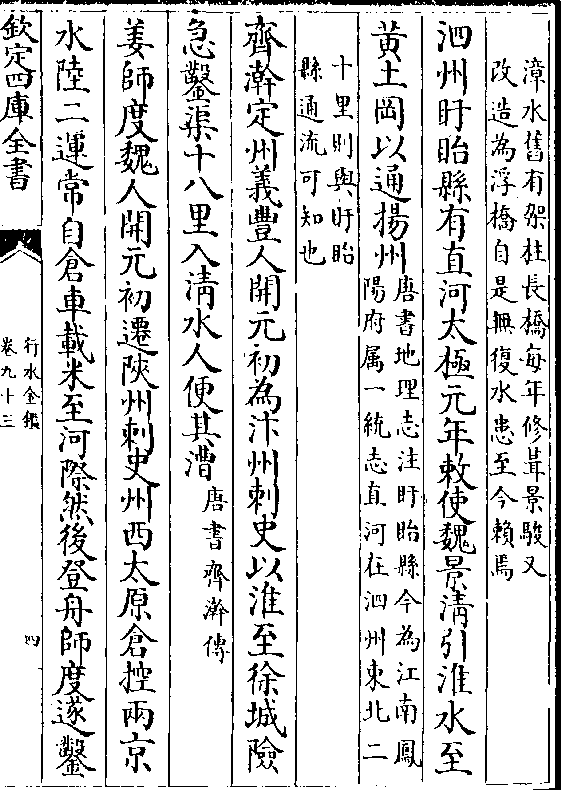 漳水舊有架柱長橋每年修葺景駿又
改造為浮橋自是無復水患至今賴焉
泗州盱眙縣有直河太極元年敕使魏景清引淮水至
黄土岡以通揚州
唐書地理志注盱眙縣今為江南鳳
陽府属一統志直河在泗州東北二
十里則與盱眙
縣通流可知也
齊澣定州義豐人開元初為汴州刺史以淮至徐城險
急鑿渠十八里入清水人便其漕
唐書齊澣傳
姜師度魏人開元初遷陜州刺史州西太原倉控兩京
水陸二運常自倉車載米至河際然後登舟師度遂鑿
欽定四庫全書
行水金鑑
卷九十三
四